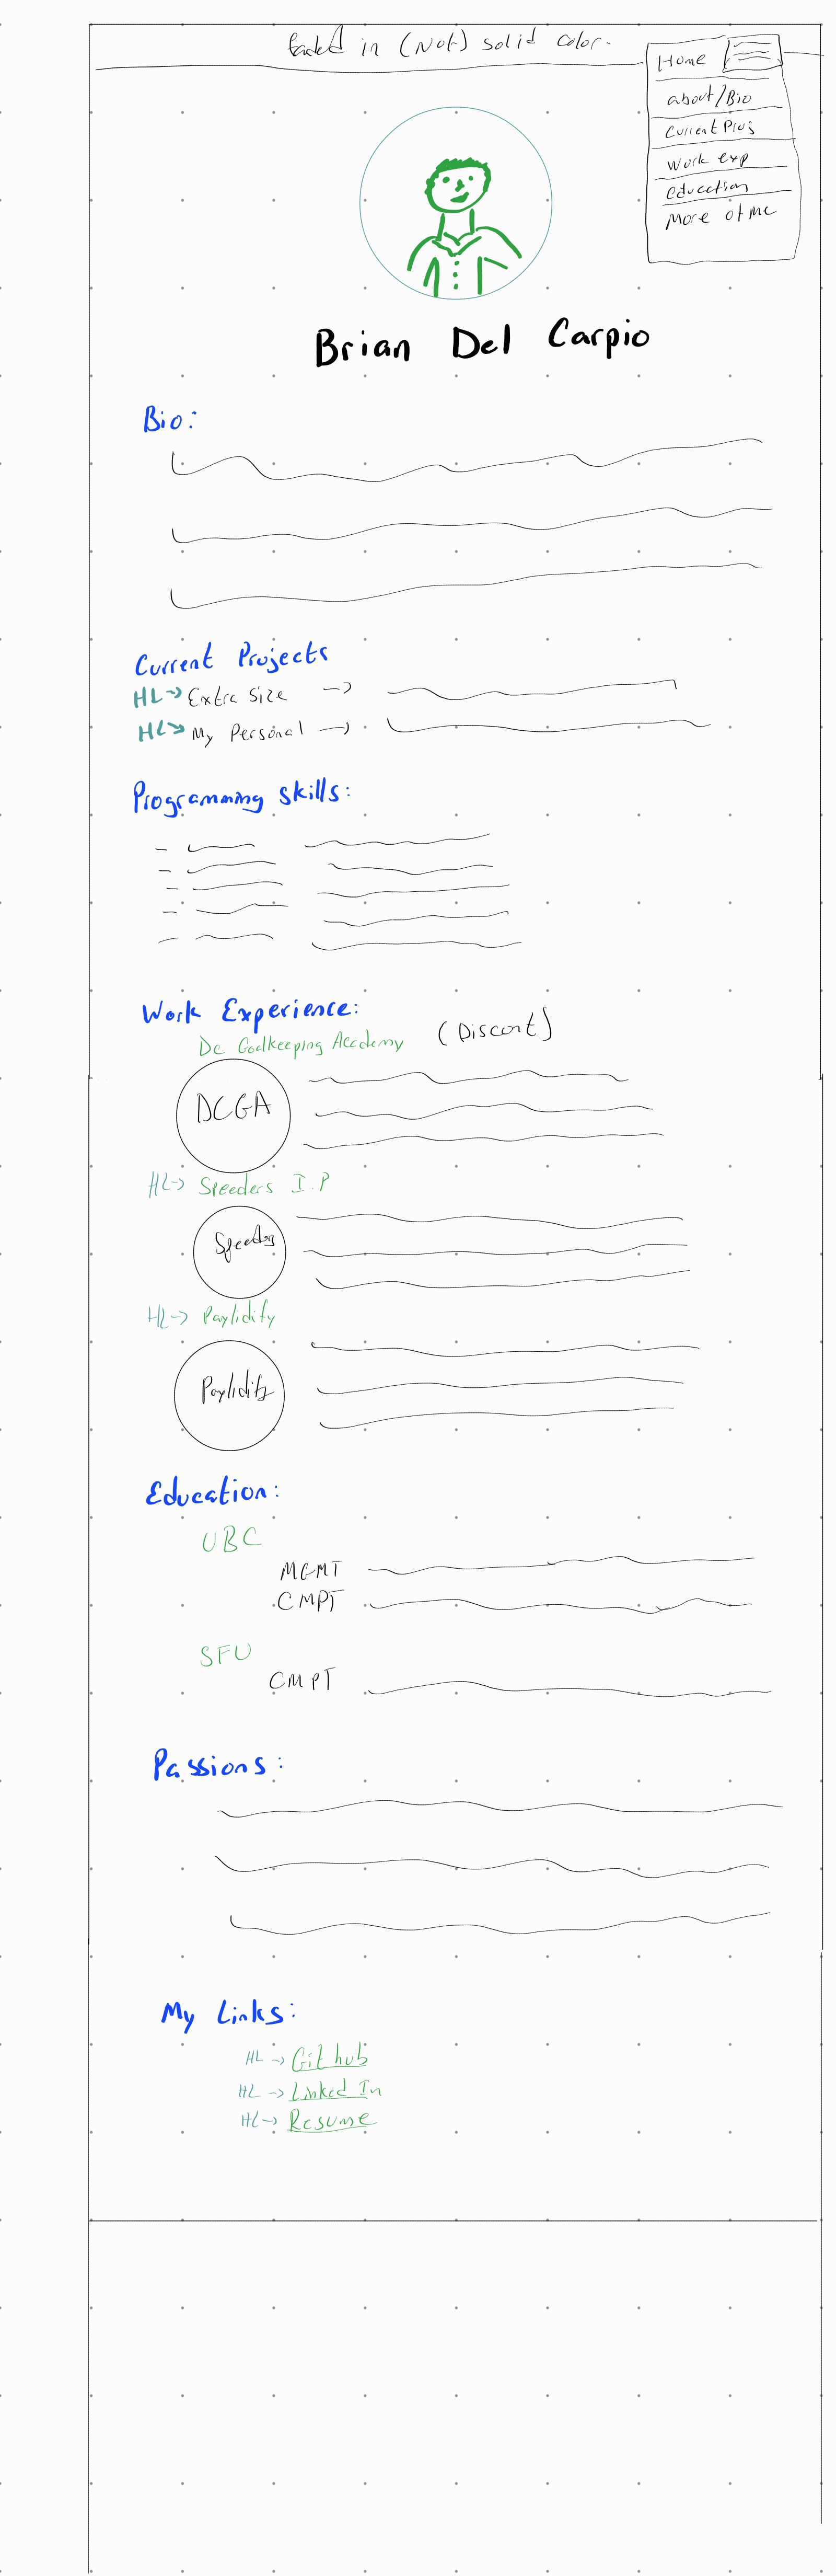 faded in (Not) solid color.
Home
about/Bio
Current Proj
Work exp
education
More of me
Brian Del Carpio
Bio:
Current Projects
HL-> Extra Size ->
HL-> My Personal ->
Programming skills:
Work Experience:
Dc Goalkeeping Academy (Discont)
DCGA
HL-> Speeders I.P
Speeders
HL-> Paylidify
Paylidify
Education:
UBC
MGMT
CMPT
SFU
CMPT
Passions:
My Links:
HL -> Github
HL -> Linked In
HL-> Resume